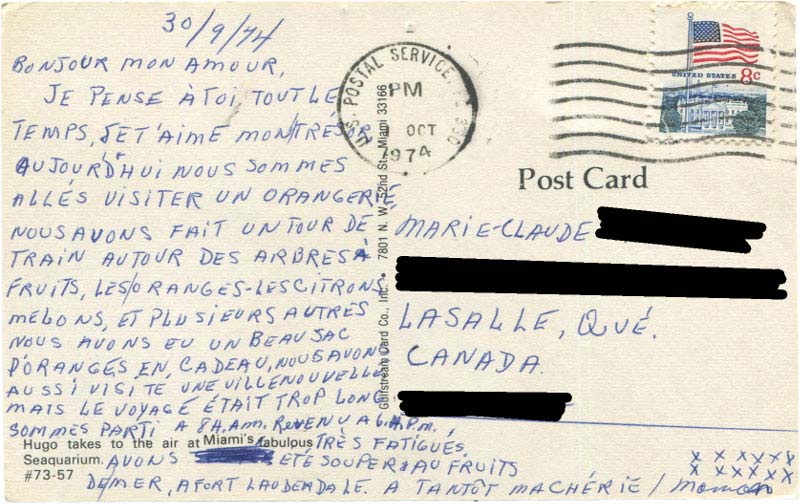 30/9/74
BONJOUR MON AMOUR,
JE PENSE À TOI TOUT LE
TEMPS, JE T'AIME MON TRÉSOR
AUJOURD'HUI NOUS SOMMES
ALLÉS VISITER UN ORANGERIE,
NOUS AVONS FAIT UN TOUR DE
TRAIN AUTOUR DES ARBRES À
FRUITS, LES ORANGES-LES CITRONS
MELONS, ET PLUSIEURS AUTRES
NOUS AVONS EU UN BEAU SAC
D'ORANGES EN CADEAU, NOUS AVONS
AUSSI VISITÉ UNE VILLE NOUVELLE
MAIS LE VOYAGE ÉTAIT TROP LONG
SOMMES PARTI A 8H.A.m. REVENU A 6.H.P.m.,
TRÈS FATIGUÉS,
AVONS ETÉ SOUPER AU FRUITS
DEMER, A FORT LAUDERDALE. A TANTÔT MACHÉRIE / Maman
x x x x x x
x x x x x x
Hugo takes to the air at Miami's fabulous
Seaquarium.
#73-57
Gulfstream Card Co., Inc. • 7801 N. W. 52nd St., Miami 33166
U.S. POSTAL SERVICE, FL 330
PM
1 OCT
1974
UNITED STATES 8c
Post Card
MARIE-CLAUDE
LASALLE, QUÉ.
CANADA.